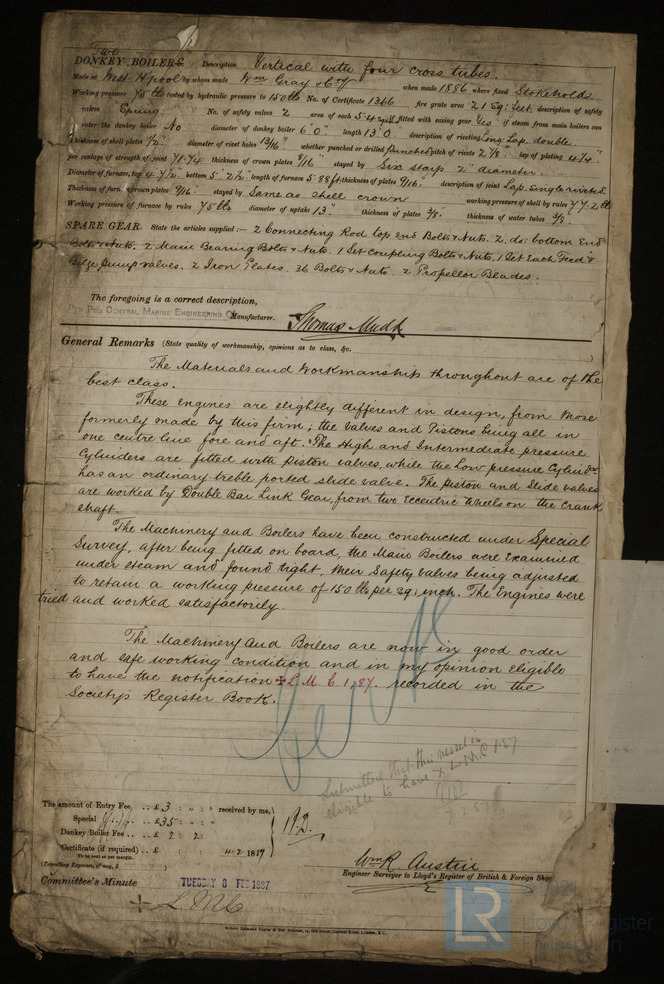 Two
DONKEY BOILERS Description Vertical with four cross tubes.
Made at West Hpool by whom made Wm Gray & Coy when made 1886 where fixed Stokehold
Working pressure 75 lb tested by hydraulic pressure to 150 lb No. of Certificate 1366 fire grate area 21 Sq: feet. description of safety
valves Spring No. of safety valves 2 area of each if fitted with easing gear Yes if steam from main boilers can
enter the donkey boiler No diameter of donkey boiler 6'0" length 13'0" description of riveting Long Lap. double.
Thickness of shell plates 1/2" diameter of rivet holes 13/16" whether punched or drilled punched pitch of rivets 2 7/8" lap of plating 4 1/4"
per centage of strength of joint 71.74 thickness of crown plates 9/16" stayed by Six stays 2" diameter.
Diameter of furnace, top 4'7 1/2" bottom 5'2 1/2" length of furnace 5.88 ft thickness of plates 9/16" description of joint Lap. single riveted
Thickness of furn. crown plates 9/16" stayed by Same as shell crown working pressure of shell by rules 77.2 lb
Working pressure of furnace by rules 75 lb diameter of uptake 13" thickness of plates 3/8" thickness of water tubes 3/8"
SPARE GEAR. State the articles supplied:— 2 Connecting Rod top end Bolts & Nuts. 2 do: bottom End
Bolts & Nuts. 2 Main Bearing Bolts & Nuts. 1 Set coupling Bolts & Nuts. 1 Set Each Feed &
Bilge pump valves. 2 Iron Plates. 36 Bolts & Nuts. 2 Propellor Blades.
The foregoing is a correct description,
Per Pro Central Marine Engineering Co. Manufacturer. Thomas Mudd
General Remarks (State quality of workmanship, opinions as to class, &c.
The Materials and Workmanship throughout are of the
best class.
These Engines are slightly different in design, from those
formerly made by this firm; the Valves and Pistons being all in
one centre line fore and aft. The High and Intermediate pressure
Cylinders are fitted with piston valves, while the Low pressure Cylindr
has an ordinary treble ported slide valve. The piston and slide valves
are worked by Double Bar Link Gear, from two Eccentric wheels on the Crank
shaft.
The Machinery and Boilers have been constructed under Special
Survey, after being fitted on board, the Main Boilers were Examined
under steam and found tight, their Safety Valves being adjusted
to retain a working pressure of 150 lb per sq: inch. The Engines were
tried and worked satisfactorily.
The Machinery and Boilers are now in good order
and safe working condition and in my opinion eligible
to have the notification ✠ L M C 1.87. recorded in the
Society's Register Book.
Submitted that this vessel is
eligible to have ✠ L.M.C 1.87
The amount of Entry Fee .. £ 3 : " : " received by me,
Special .. £35 : " : "
Donkey Boiler Fee .. £ 2 : 2 :
Certificate (if required) .. £ : : 4.2.1887
To be sent as per margin.
(Travelling Expenses, if any, £
Wm R Austin
Engineer Surveyor to Lloyd's Register of British & Foreign Ship
Committee's Minute TUESDAY 8 FEB 1887
✠ L M C
LR
Lloyd's Register
Foundation